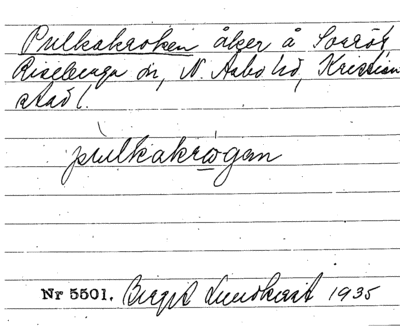 Pulkakroken åker å Sorröd,
Riseberga sn, N. Åsbo hd, Kristian
stad l.
pulkakrogen
Nr 5501. Birgit Lundkvist 1935